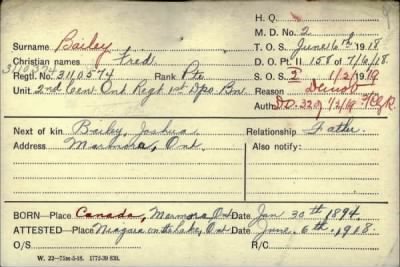 H. Q.
M. D. No. 2
Surname Bailey
T. O. S. June 6th 1918
Christian names Fred
D. O. Pt. II 158 of 7/6/18
3110574
Regtl. No. 3110574 Rank Pte
S. O. S. I 1/2/1919
Unit 2nd Cen. Ont Regt 1st Dpo. Bn
Reason Demob
Auth. D.O. 32 of 1/2/19
Next of kin Bailey, Joshua
Relationship Father
Address Marmora, Ont.
Also notify:
BORN—Place Canada, Marmora, Ont Date Jan 30th 1894
ATTESTED—Place Niagara on the lake, Ont Date June 6th 1918
O/S R/C
W. 22—75m-5-18. 1772-39 833.